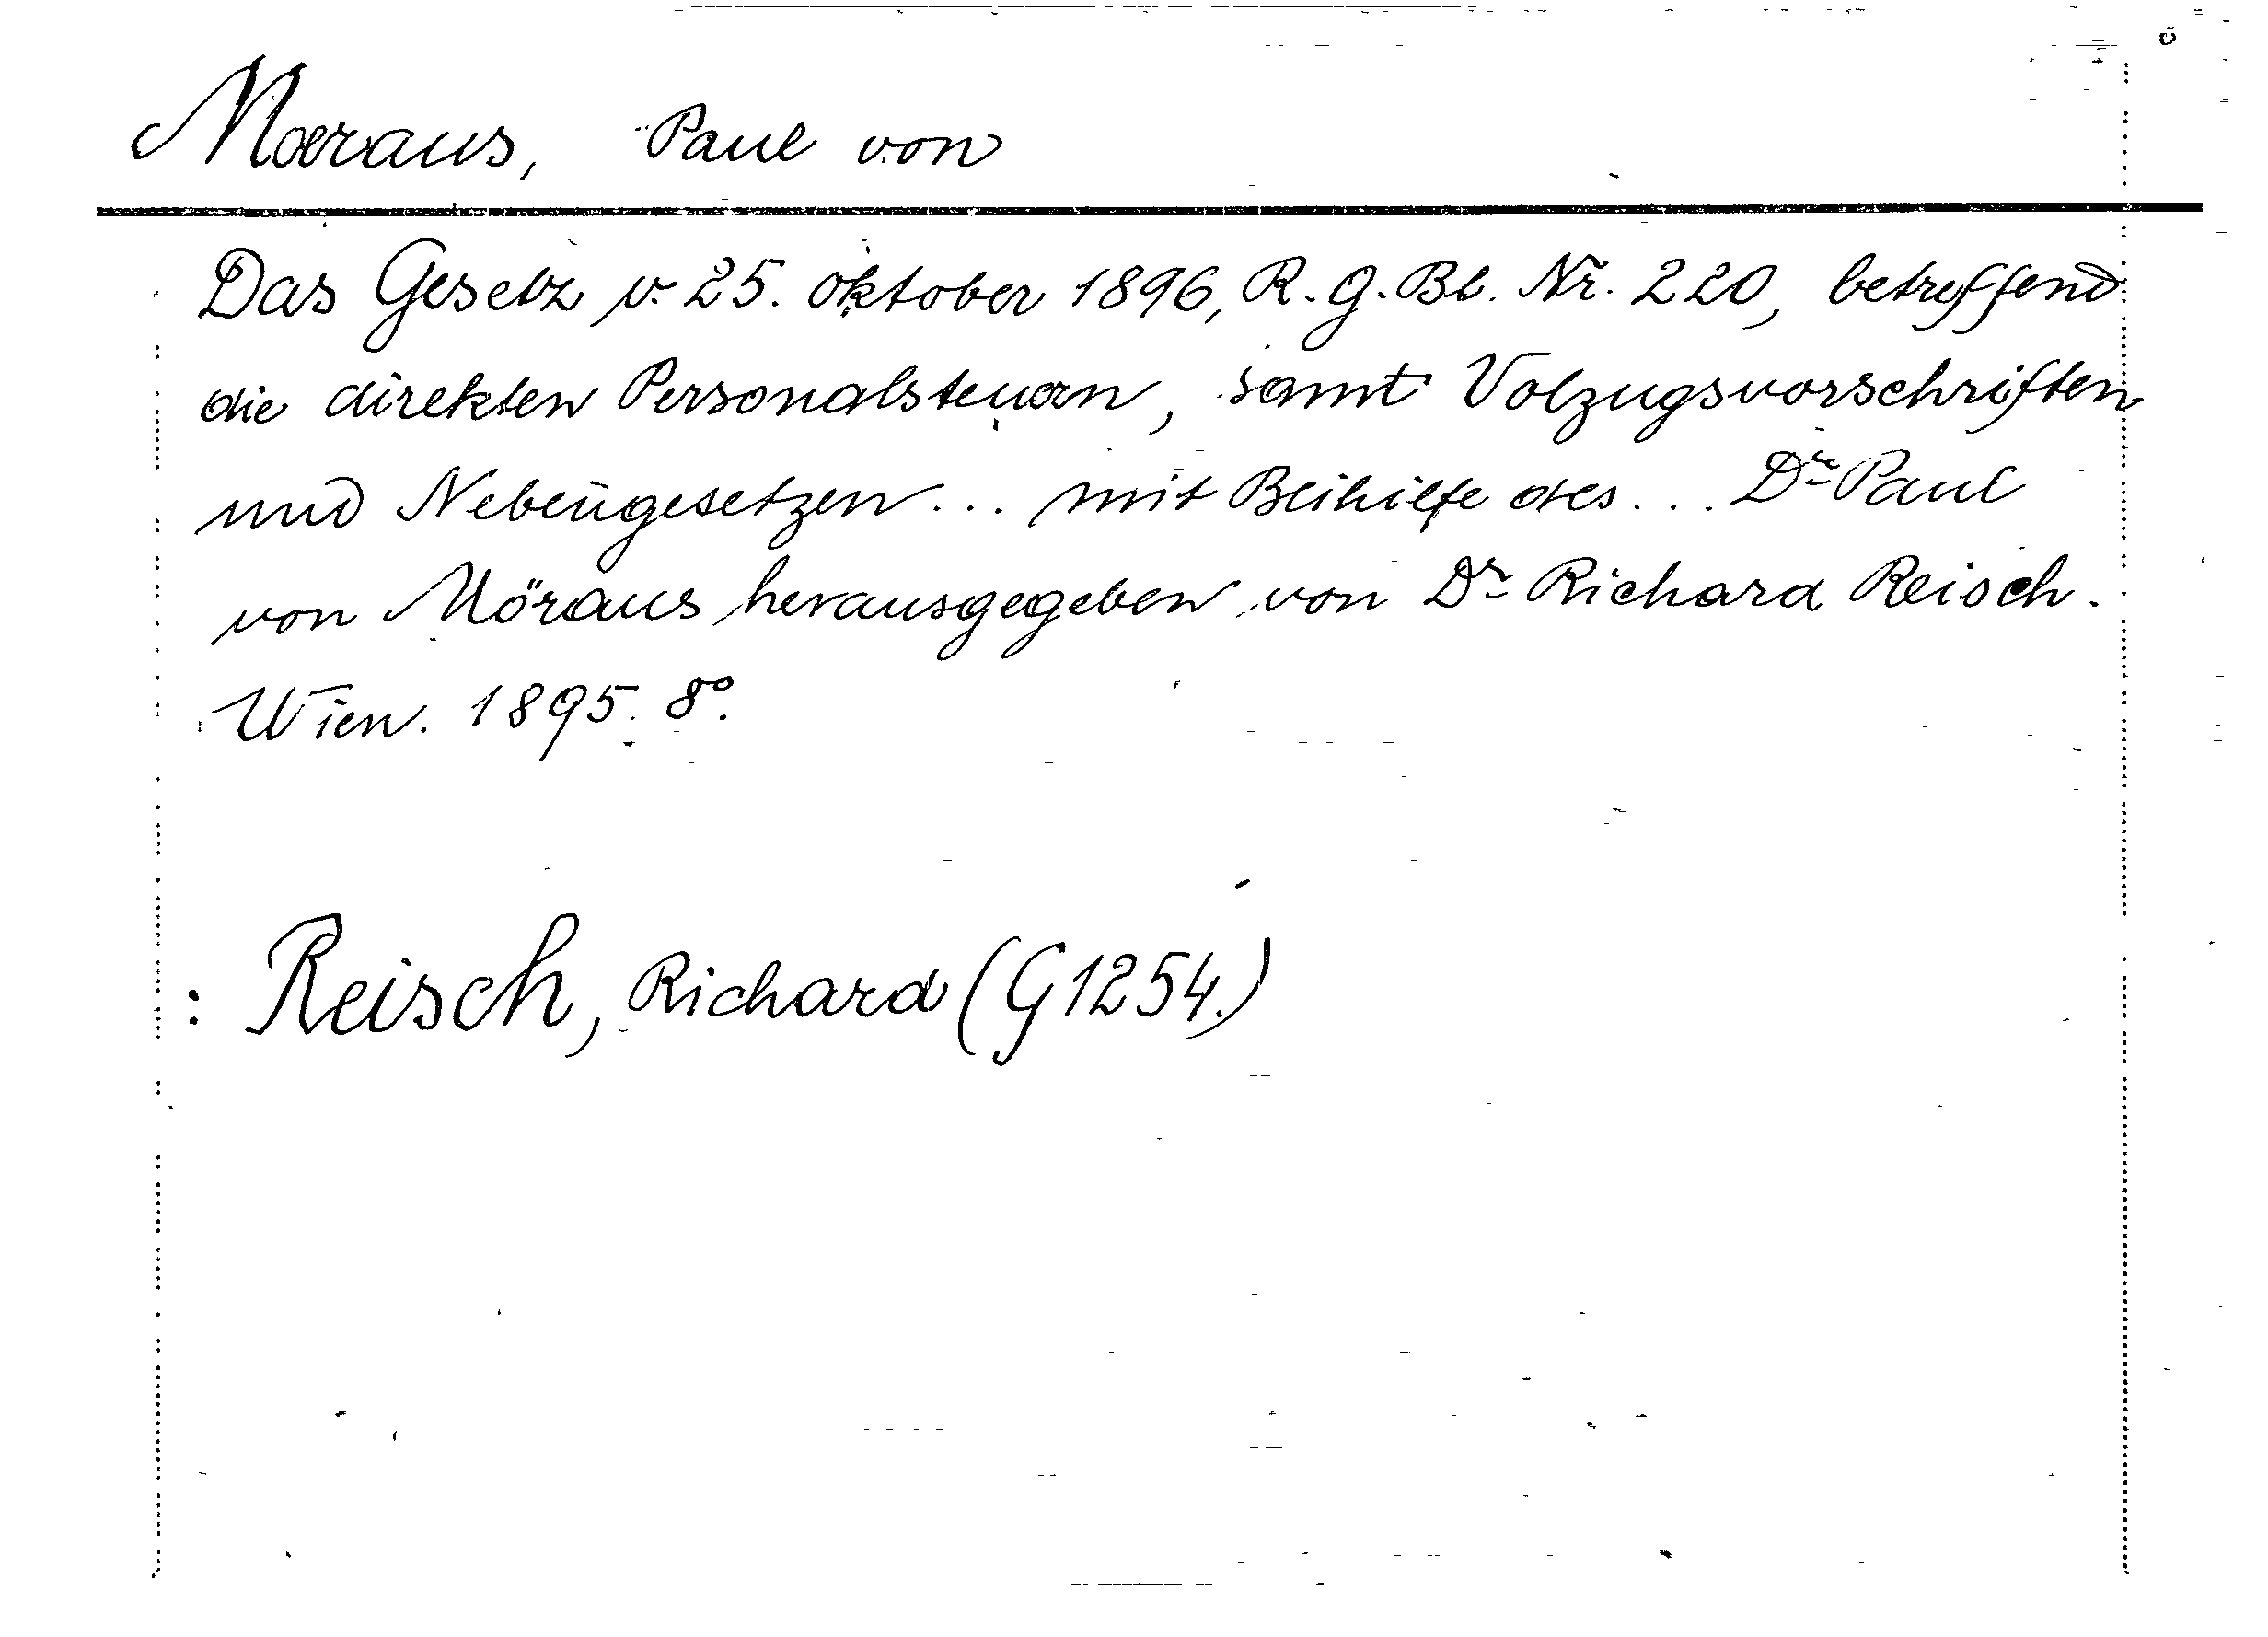 Moeraus, Paul von
Das Gesetz v. 25. Oktober 1896, R. G. Bl. Nr. 220, betreffend
die direkten Personalsteuern, samt Volzugsvorschriften
und Nebengesetzen... mit Beihilfe des... Dr Paul
von Möraus herausgegeben von Dr Richard Reisch.
Wien. 1895. 8°.
: Reisch, Richard (G 1254.)